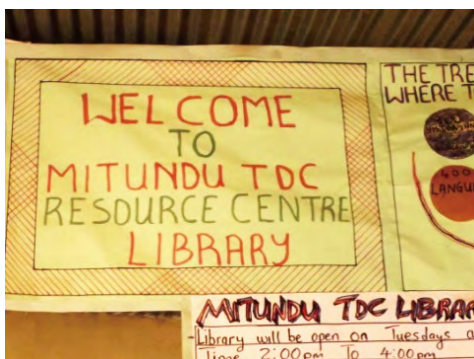 WELCOME
TO
MITUNDU TDC
RESOURCE CENTRE
LIBRARY
THE TRE
WHERE T
400
LANGU
MITUNDU TDC LIBRAR
Library will be open on Tuesdays a
Time 2:00pm To 4:00pm